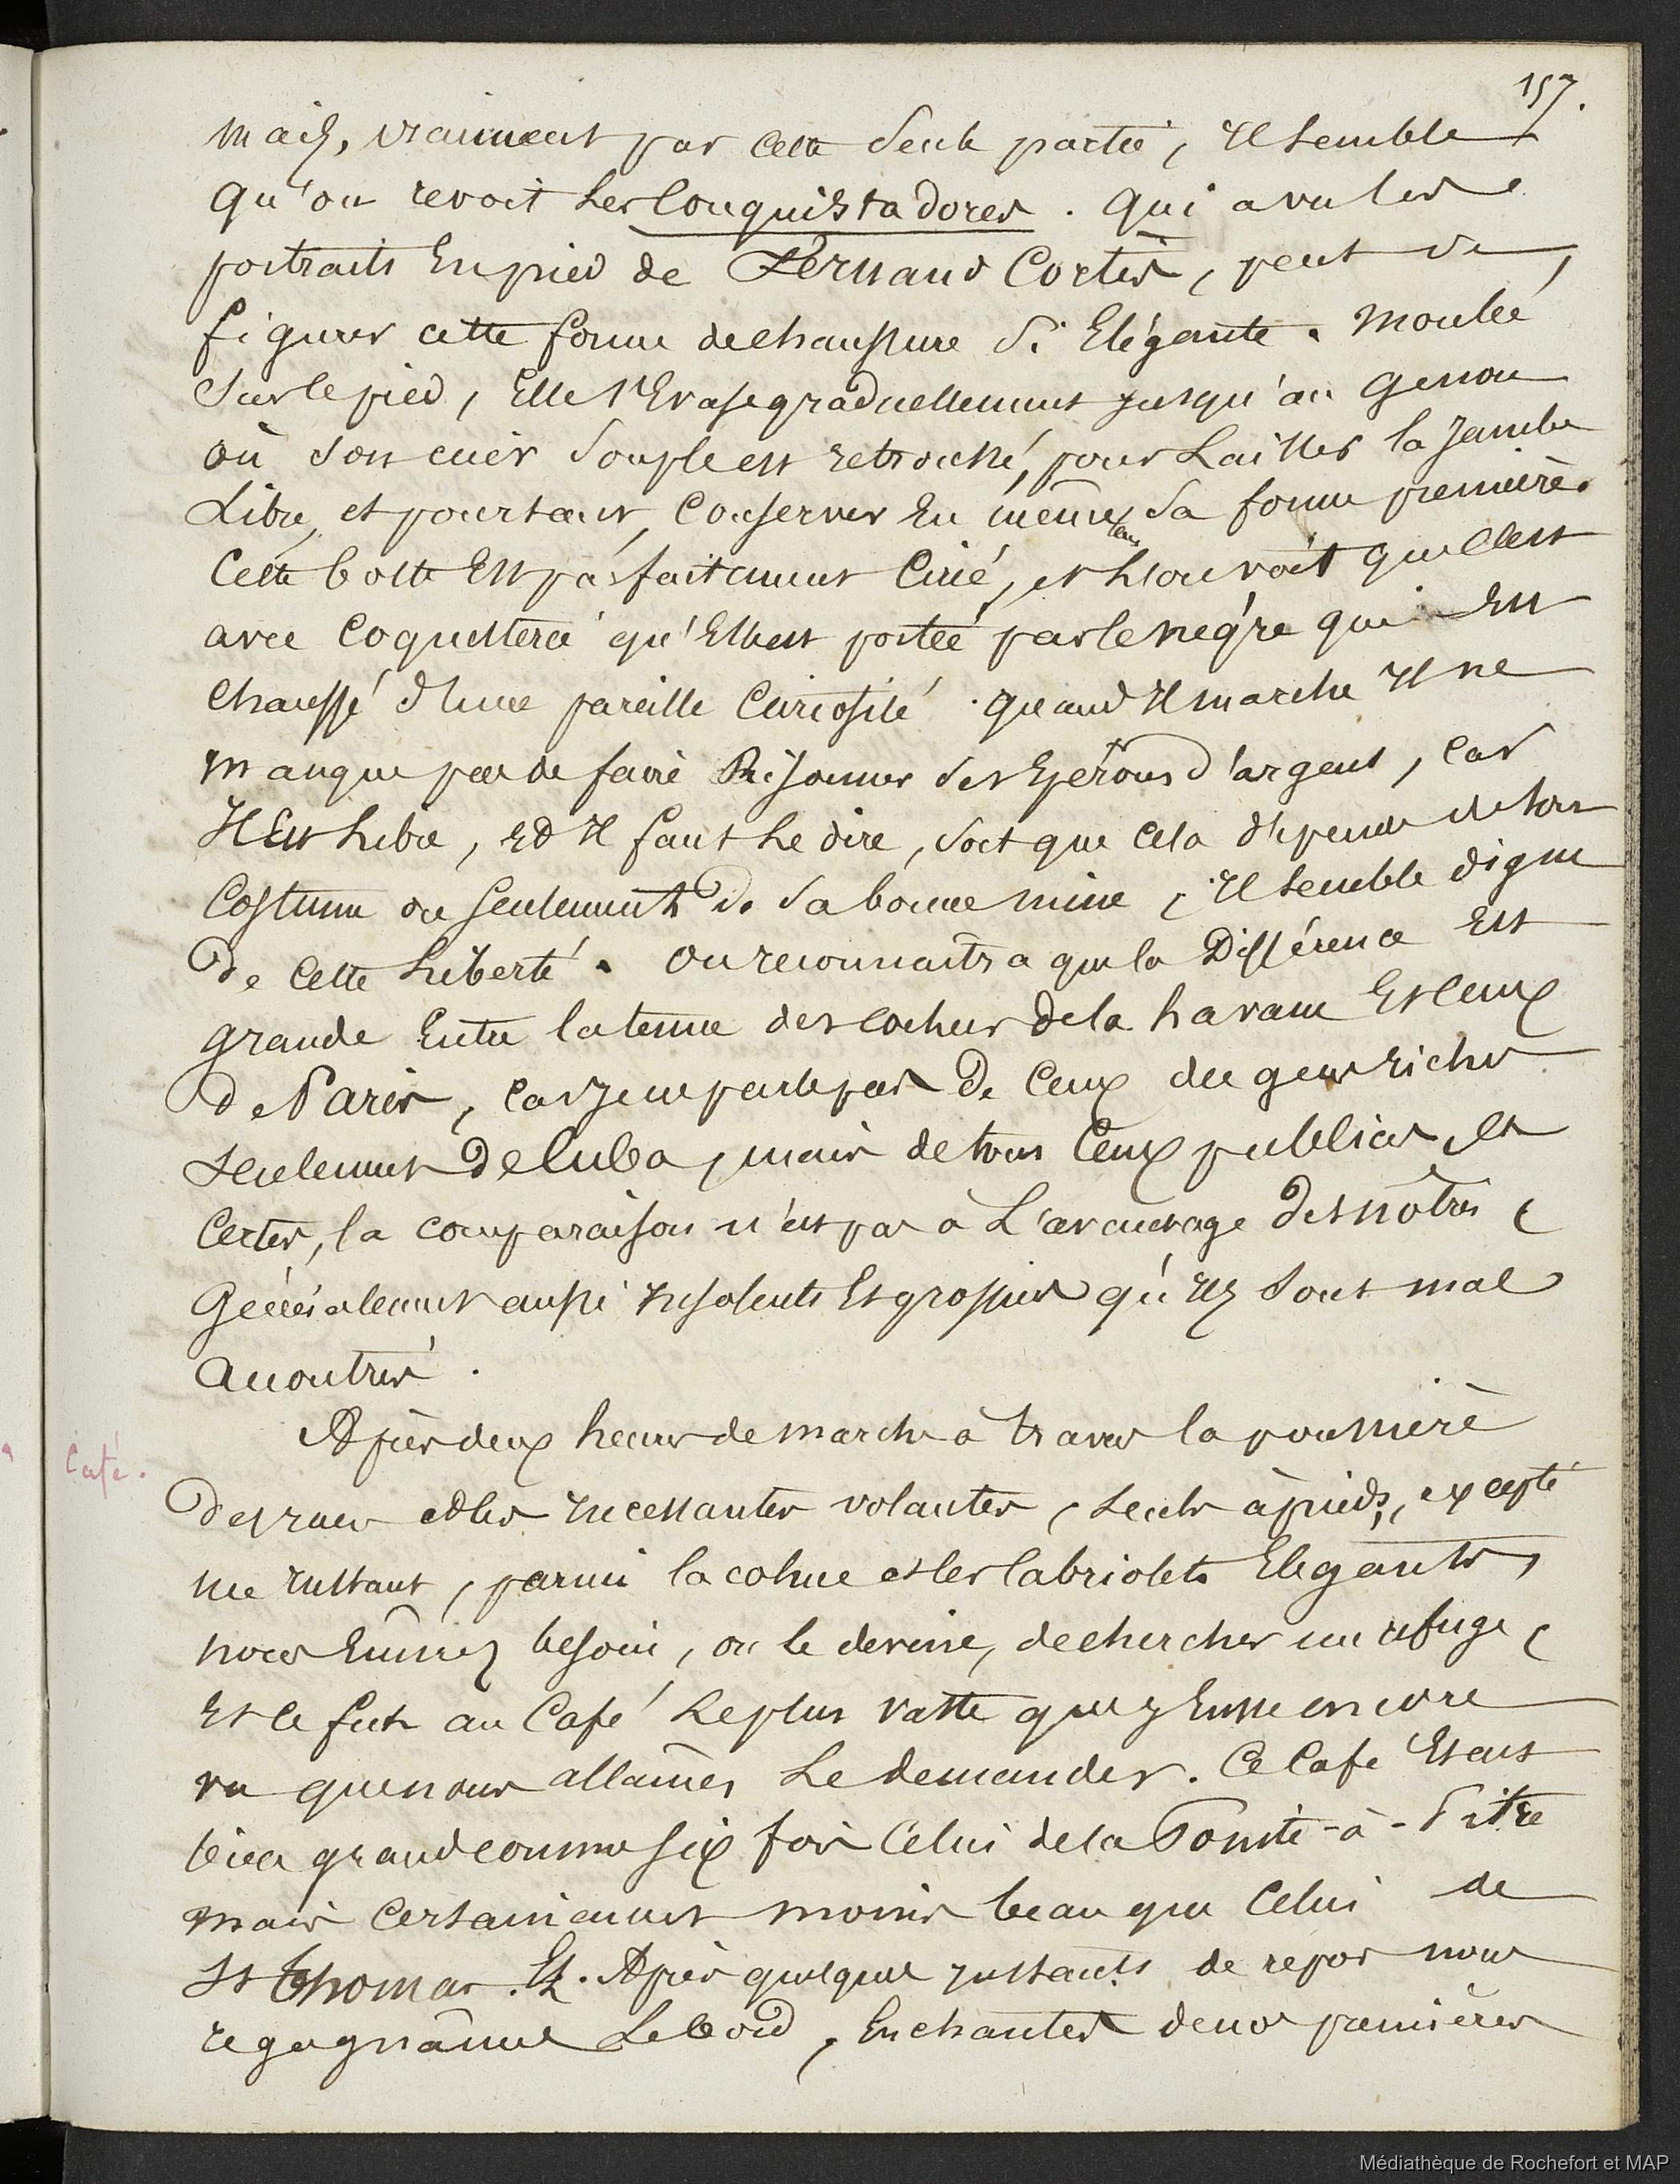 157.
mais, vraiment par cette seule partie, Il semble
qu'on revoit les Conquistadores. Qui a vu les
portraits En pied de Fernand Cortès, peut se
figurer cette forme de chaussure si Elégante. Moulée
sur le pied, Elle s'Evase graduellement jusqu'au genou
où son cuir souple est retroussé, pour Laisser la jambe
Libre, et pourtant, Conserver En même tems sa forme première.
Cette botte Est parfaitement Ciré, et l'on voit que c'est
avec Coquetterie qu'Elle est portée par le nègre qui Est
Chaussé d'une pareille Curiosité. Quand Il marche Il ne
manque pas de faire Résonner ses Eperons d'argent, Car
Il Est Libre, Et Il faut Le dire, soit que Cela dépende de son
Costume ou seulement de sa bonne mine, Il semble digne
de Cette Liberté. On reconnaîtra que la Différence Est
grande Entre la tenue des cochers de la havane Et ceux
de Paris, Car je ne parle pas de Ceux des gens riches
seulement de Cuba, mais de tous Ceux publics, et
Certes, la comparaison n'est pas à L'avantage des nôtres,
Généralement aussi Insolents Et grossiers qu'Ils sont mal
accoutrés.
Café.
Après deux heures de marche à travers la poussière
des rues et les Incessantes volantes, seuls à pieds, excepté
un Instant, parmi la cohue et les Cabriolets Elegants,
nous Eûmes besoin, on le devine, de chercher un refuge,
Et ce fut au Café Le plus vaste que j'Eusse encore
vu que nous allâmes Le demander. Ce Café Etait
bien grand comme six fois Celui de la Pointe-à-Pitre
mais Certainement moins beau que Celui de
St Thomas. Après quelques Instants de repos nous
regagnâmes Le bord, Enchantés de nos premières